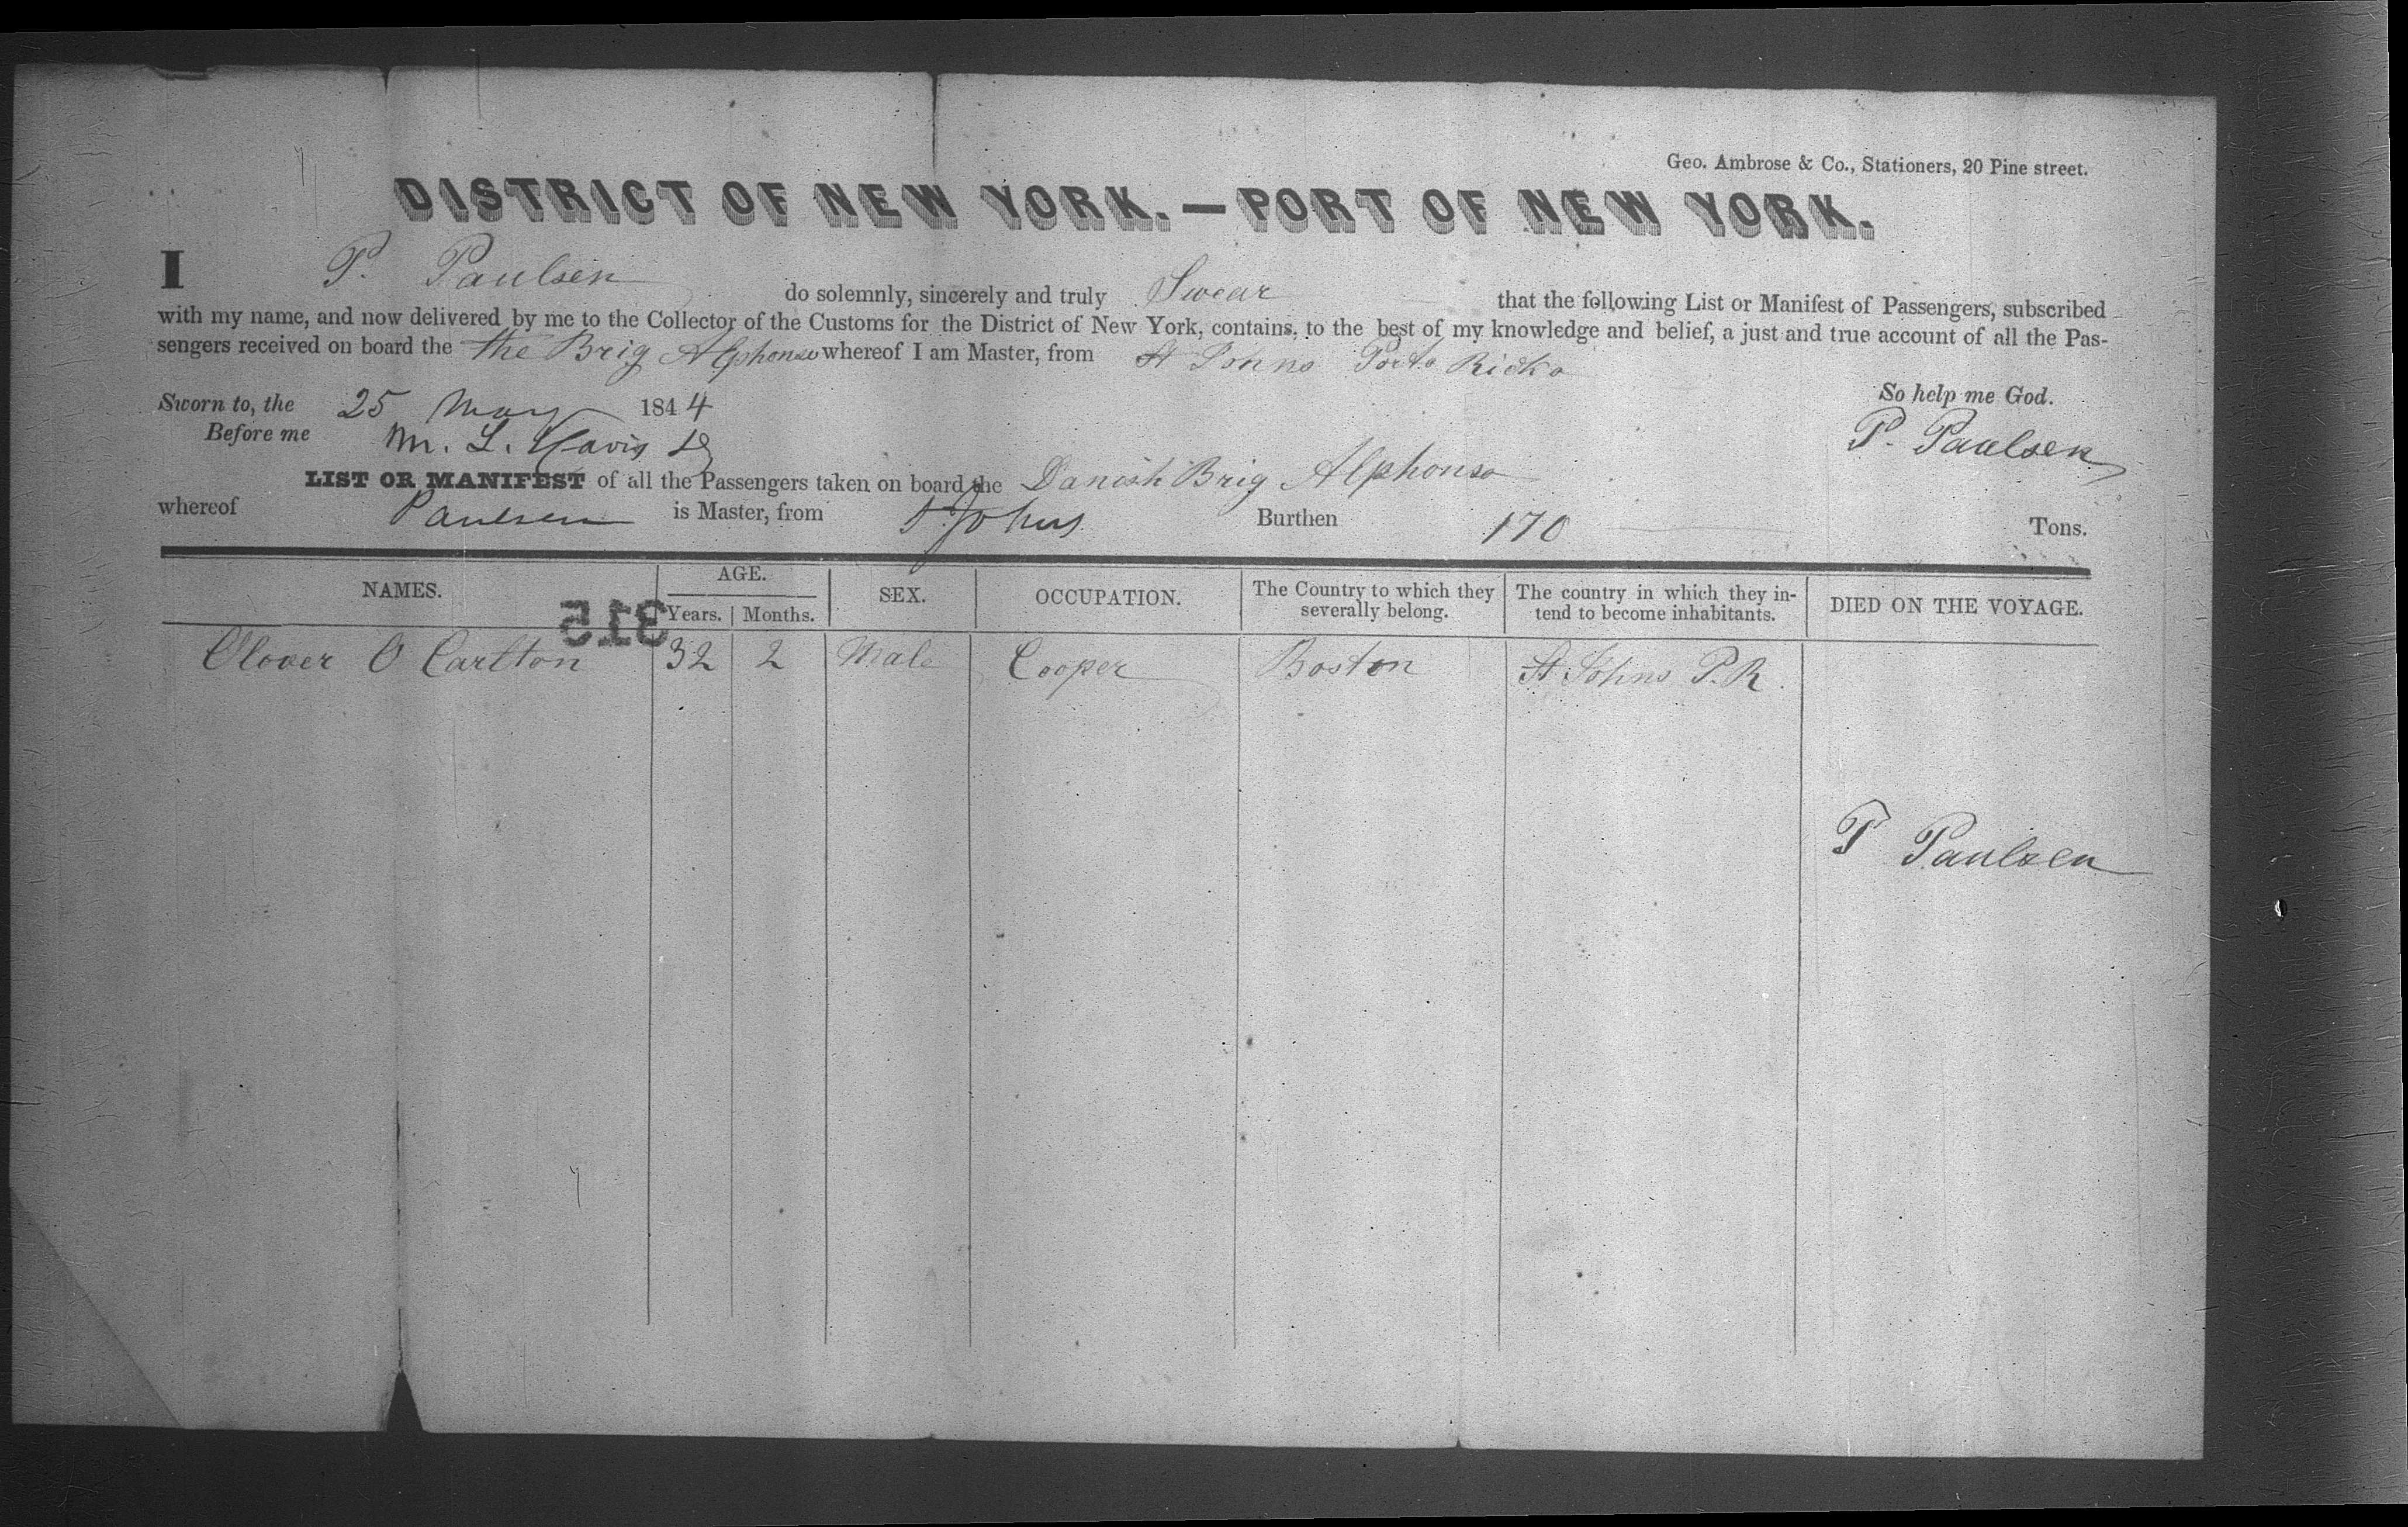 Geo. Ambrose & Co., Stationers, 20 Pine street.
DISTRICT OF NEW YORK.—PORT OF NEW YORK.
I P. Paulsen do solemnly, sincerely and truly Swear that the following List or Manifest of Passengers, subscribed
with my name, and now delivered by me to the Collector of the Customs for the District of New York, contains, to the best of my knowledge and belief, a just and true account of all the Pas-
sengers received on board the the Brig Alphonso whereof I am Master, from St Johns Porto Ricko
So help me God.
Sworn to, the 25 May 1844
P. Paulsen
Before me M. L. Davis
LIST OR MANIFEST of all the Passengers taken on board the Danish Brig Alphonso
whereof Paulsen is Master, from St Johns Burthen 170 Tons.
NAMES. AGE. Years. Months. SEX. OCCUPATION. The Country to which they severally belong. The country in which they in-tend to become inhabitants. DIED ON THE VOYAGE.
315
Olover O Carlton 32 2 Male Cooper Boston St Johns P.R.
P Paulsen